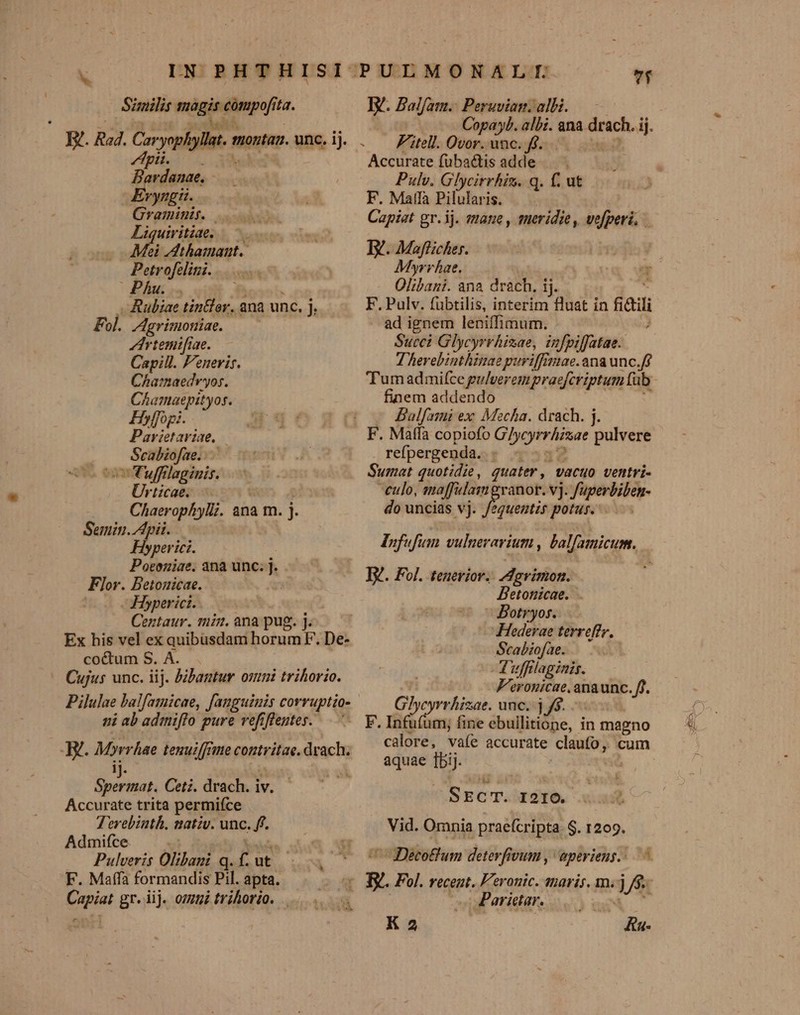 IN PHTHISI PULMONALI. 75
Similis magis composita.
℞. Rad. Caryophyllat. montan. unc. ij.
Apii.
Bardanae.
Eryngii.
Graminis.
Liquiritiae.
Mei Athamant.
Petroselini.
Phu.
Rubiae tinctor. ana unc. j.
Fol. Agrimoniae.
Artemisiae.
Capill. Veneris.
Chamaedryos.
Chamaepityos.
Hyssopi.
Parietariae.
Scabiosae.
Tussilaginis.
Urticae.
Chaerophylli. ana m. j.
Semin. Apii.
Hyperici.
Poeoniae. ana unc. j.
Flor. Betonicae.
Hyperici.
Centaur. min. ana pug. j.
Ex his vel ex quibusdam horum F. De-
coctum S. A.
Cujus unc. iij. bibantur omni trihorio.
Pilulae balsamicae, sanguinis corruptio-
ni ab admisto pure resistentes.
℞. Myrrhae tenuissime contritae. drach.
ij.
Spermat. Ceti. drach. iv.
Accurate trita permisce
Terebinth. nativ. unc. ß.
Admisce
Pulveris Olibani q. s. ut
F. Massa formandis Pil. apta.
Capiat gr. iij. omni trihorio.
℞. Balsam. Peruvian. albi.
Copayb. albi. ana drach. ij.
Vitell. Ovor. unc. ß.
Accurate subactis adde
Pulv. Glycirrhiz. q. s. ut
F. Massa Pilularis.
Capiat gr. ij. mane, meridie, vesperi.
℞. Mastiches.
Myrrhae.
Olibani. ana drach. ij.
F. Pulv. subtilis, interim fluat in fictili
ad ignem lenissimum.
Succi Glycyrrhizae, inspissatae.
Therebinthinae purissimae. ana unc. ß
Tum admisce pulverem praescriptum sub
finem addendo
Balsami ex Mecha. drach. j.
F. Massa copioso Glycyrrhizae pulvere
respergenda.
Sumat quotidie, quater, vacuo ventri-
culo, massulam granor. vj. superbiben-
do uncias vj. sequentis potus.
Infusum vulnerarium, balsamicum.
℞. Fol. tenerior. Agrimon.
Betonicae.
Botryos.
Hederae terrestr.
Scabiosae.
Tussilaginis.
Veronicae. ana unc. ß.
Glycyrrhizae. unc. j ß.
F. Infusum; sine ebullitione, in magno
calore, vase accurate clauso, cum
aquae ℔ij.
SECT. 1210.
Vid. Omnia praescripta §. 1209.
Decoctum detersivum, aperiens.
℞. Fol. recent. Veronic. maris. m. j ß.
Parietar.
K 2 Ru-